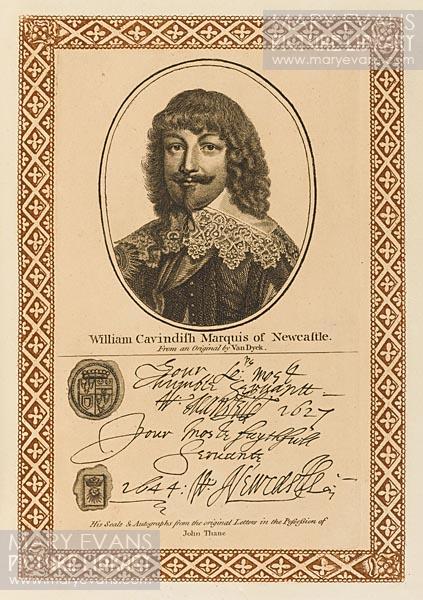 MARY EVANS
PICTURE LIBRARY
www.maryevans.com
William Cavindiſh Marquis of Newcaſtle.
From an Original by Van Dyck.
Your Lo:ps moste
humble Servante
1627
Your Moste faythfull
Servante
1644: W Newcastle
His Seals & Autographs from the original Letters in the Poſseſsion of
John Thane
MARY EVANS
PICTURE LIBRARY
www.maryevans.com